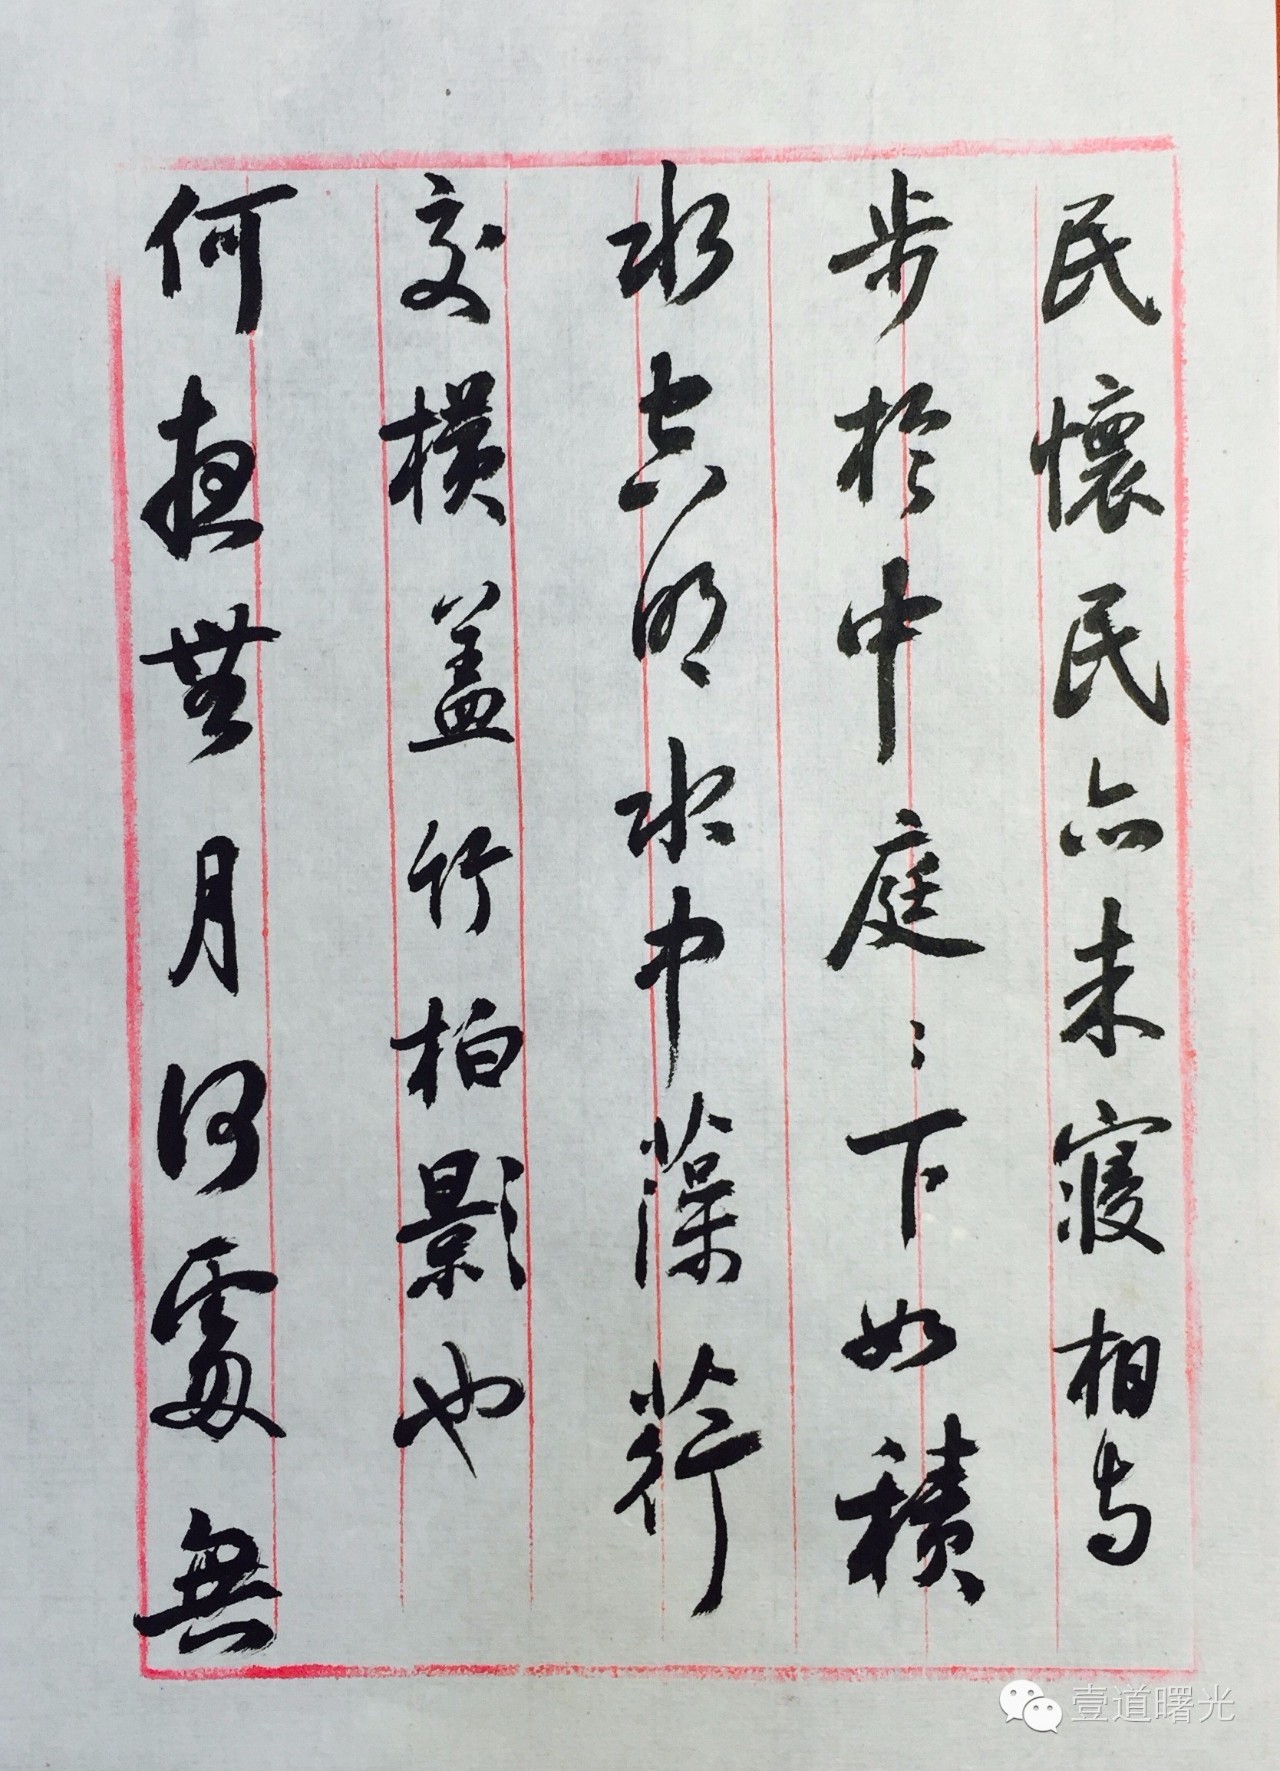 民懷民亦未寢相与
步於中庭〻下如積
水空明水中藻荇
交橫蓋竹柏影也
何夜無月何處無
壹道曙光